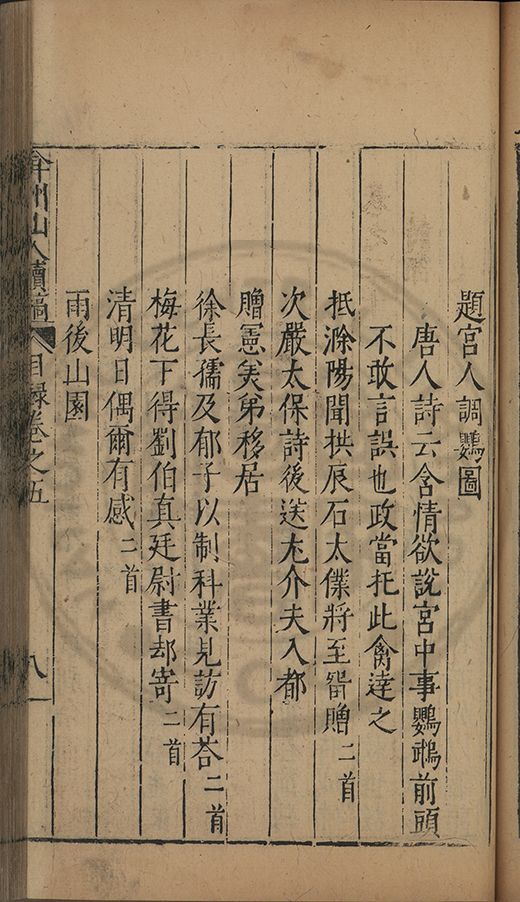 題宮人調鸚圖
唐人詩云含情欲說宮中事鸚鵡前頭
不敢言誤也政當托此禽達之
抵滁陽聞拱辰石太僕將至留贈二首
次嚴太保詩後送尤介夫入都
贈憲美弟移居
徐長孺及郁子以制科業見訪有荅二首
梅花下得劉伯真廷尉書却寄二首
清明日偶爾有感二首
雨後山園
弇州山人續稿 目録卷之五 八